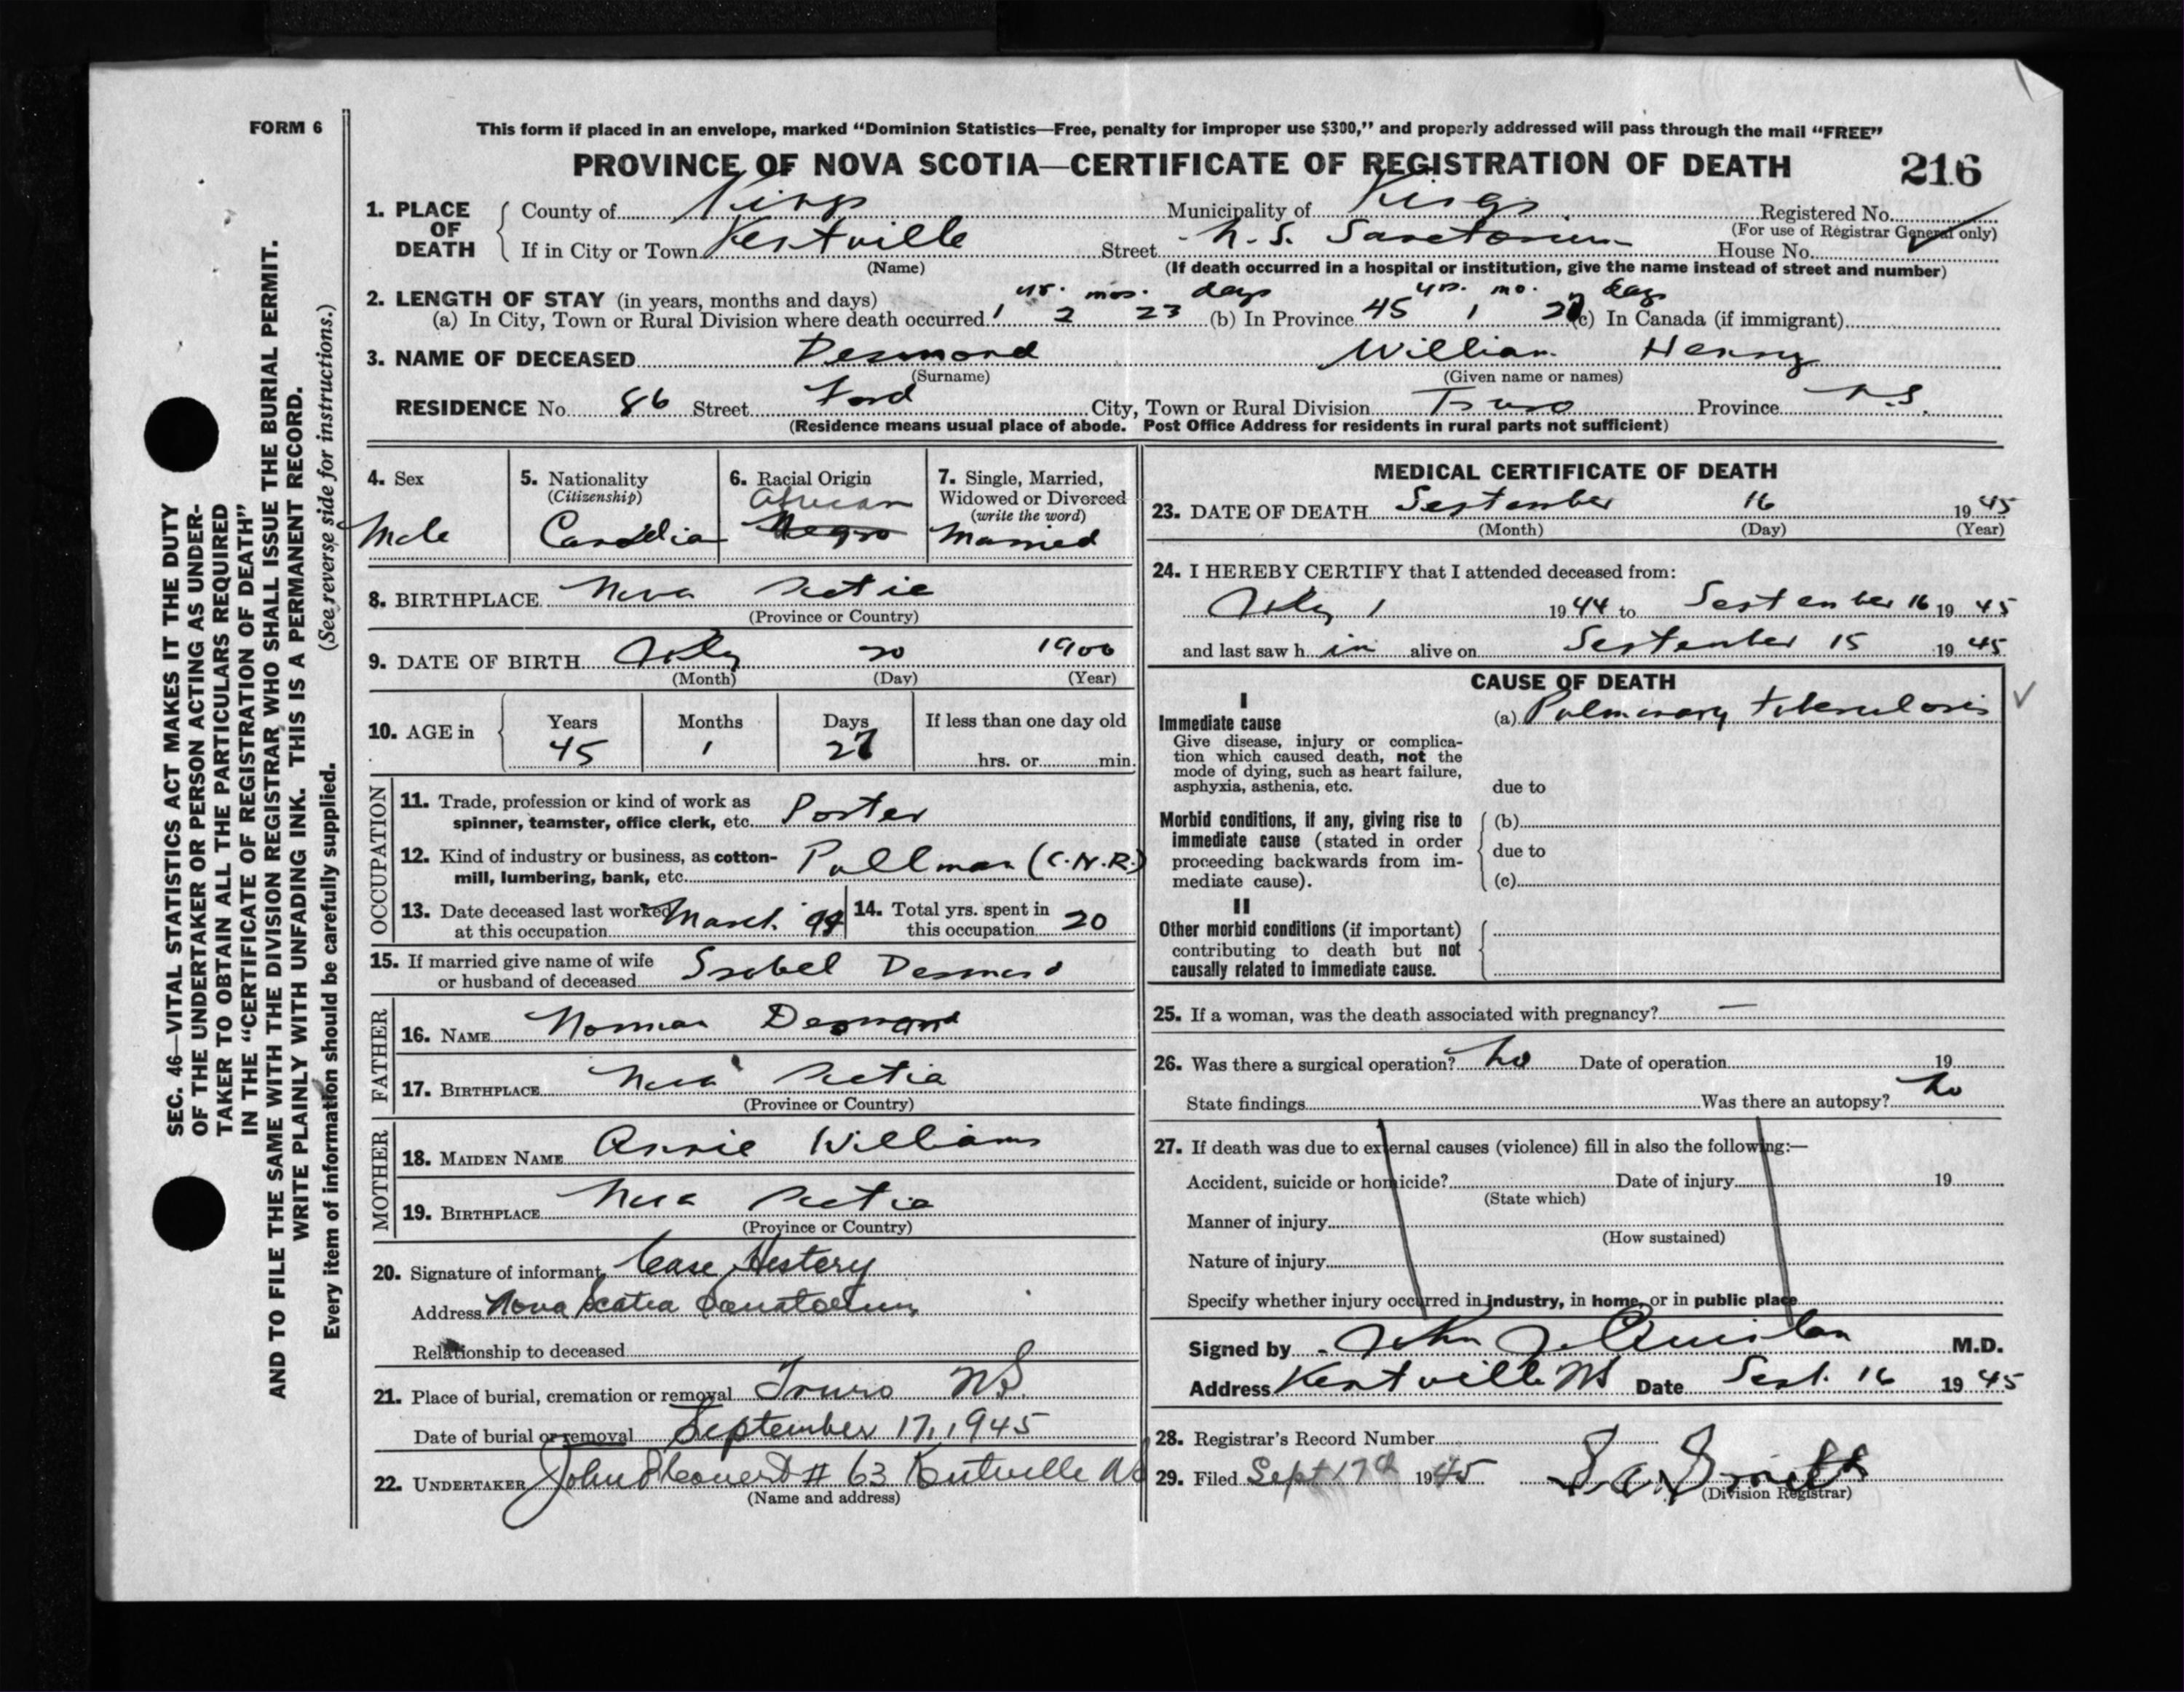 FORM 6
This form if placed in an envelope, marked "Dominion Statistics—Free, penalty for improper use $300," and properly addressed will pass through the mail "FREE"
PROVINCE OF NOVA SCOTIA—CERTIFICATE OF REGISTRATION OF DEATH 216
1. PLACE OF DEATH County of Kings Municipality of Kings Registered No.
(For use of Registrar General only)
If in City or Town Kentville Street N.S. Sanatorium House No.
(Name) (If death occurred in a hospital or institution, give the name instead of street and number)
2. LENGTH OF STAY (in years, months and days) yr. mos. days yrs. mo. days
(a) In City, Town or Rural Division where death occurred 1 2 23 (b) In Province 45 1 27 (c) In Canada (if immigrant)
3. NAME OF DECEASED Desmond William Henry
(Surname) (Given name or names)
RESIDENCE No. 86 Street Ford City, Town or Rural Division Truro Province N.S.
(Residence means usual place of abode. Post Office Address for residents in rural parts not sufficient)
4. Sex Male
5. Nationality (Citizenship) Canadian
6. Racial Origin African Negro
7. Single, Married, Widowed or Divorced (write the word) Married
8. BIRTHPLACE Nova Scotia
(Province or Country)
9. DATE OF BIRTH July 20 1900
(Month) (Day) (Year)
10. AGE in Years Months Days If less than one day old
45 1 27 hrs. or min.
OCCUPATION
11. Trade, profession or kind of work as
spinner, teamster, office clerk, etc. Porter
12. Kind of industry or business, as cotton-
mill, lumbering, bank, etc. Pullman (C.N.R.)
13. Date deceased last worked
at this occupation March '44
14. Total yrs. spent in
this occupation 20
15. If married give name of wife
or husband of deceased Isobel Desmond
FATHER
16. NAME Norman Desmond
17. BIRTHPLACE Nova Scotia
(Province or Country)
MOTHER
18. MAIDEN NAME Annie Williams
19. BIRTHPLACE Nova Scotia
(Province or Country)
20. Signature of informant Case History
Address Nova Scotia Sanatorium
Relationship to deceased
21. Place of burial, cremation or removal Truro NS.
Date of burial or removal September 17, 1945
22. UNDERTAKER John # 63 Kentville NS
(Name and address)
MEDICAL CERTIFICATE OF DEATH
23. DATE OF DEATH September 16 1945
(Month) (Day) (Year)
24. I HEREBY CERTIFY that I attended deceased from:
July 1 1944 to September 16 1945
and last saw h im alive on September 15 1945
CAUSE OF DEATH
I
Immediate cause (a) Pulmonary tuberculosis
Give disease, injury or complica-
tion which caused death, not the
mode of dying, such as heart failure,
asphyxia, asthenia, etc. due to
Morbid conditions, if any, giving rise to (b)
immediate cause (stated in order
proceeding backwards from im- due to
mediate cause). (c)
II
Other morbid conditions (if important)
contributing to death but not
causally related to immediate cause.
25. If a woman, was the death associated with pregnancy? —
26. Was there a surgical operation? No Date of operation 19
State findings Was there an autopsy? No
27. If death was due to external causes (violence) fill in also the following:—
Accident, suicide or homicide? Date of injury 19
(State which)
Manner of injury
(How sustained)
Nature of injury
Specify whether injury occurred in industry, in home, or in public place
Signed by John J. Quinlan M.D.
Address Kentville NS Date Sept. 16 1945
28. Registrar's Record Number
29. Filed Sept 17th 1945
(Division Registrar)
SEC. 46—VITAL STATISTICS ACT MAKES IT THE DUTY
OF THE UNDERTAKER OR PERSON ACTING AS UNDER-
TAKER TO OBTAIN ALL THE PARTICULARS REQUIRED
IN THE "CERTIFICATE OF REGISTRATION OF DEATH"
AND TO FILE THE SAME WITH THE DIVISION REGISTRAR WHO SHALL ISSUE THE BURIAL PERMIT.
WRITE PLAINLY WITH UNFADING INK. THIS IS A PERMANENT RECORD.
Every item of information should be carefully supplied. (See reverse side for instructions.)